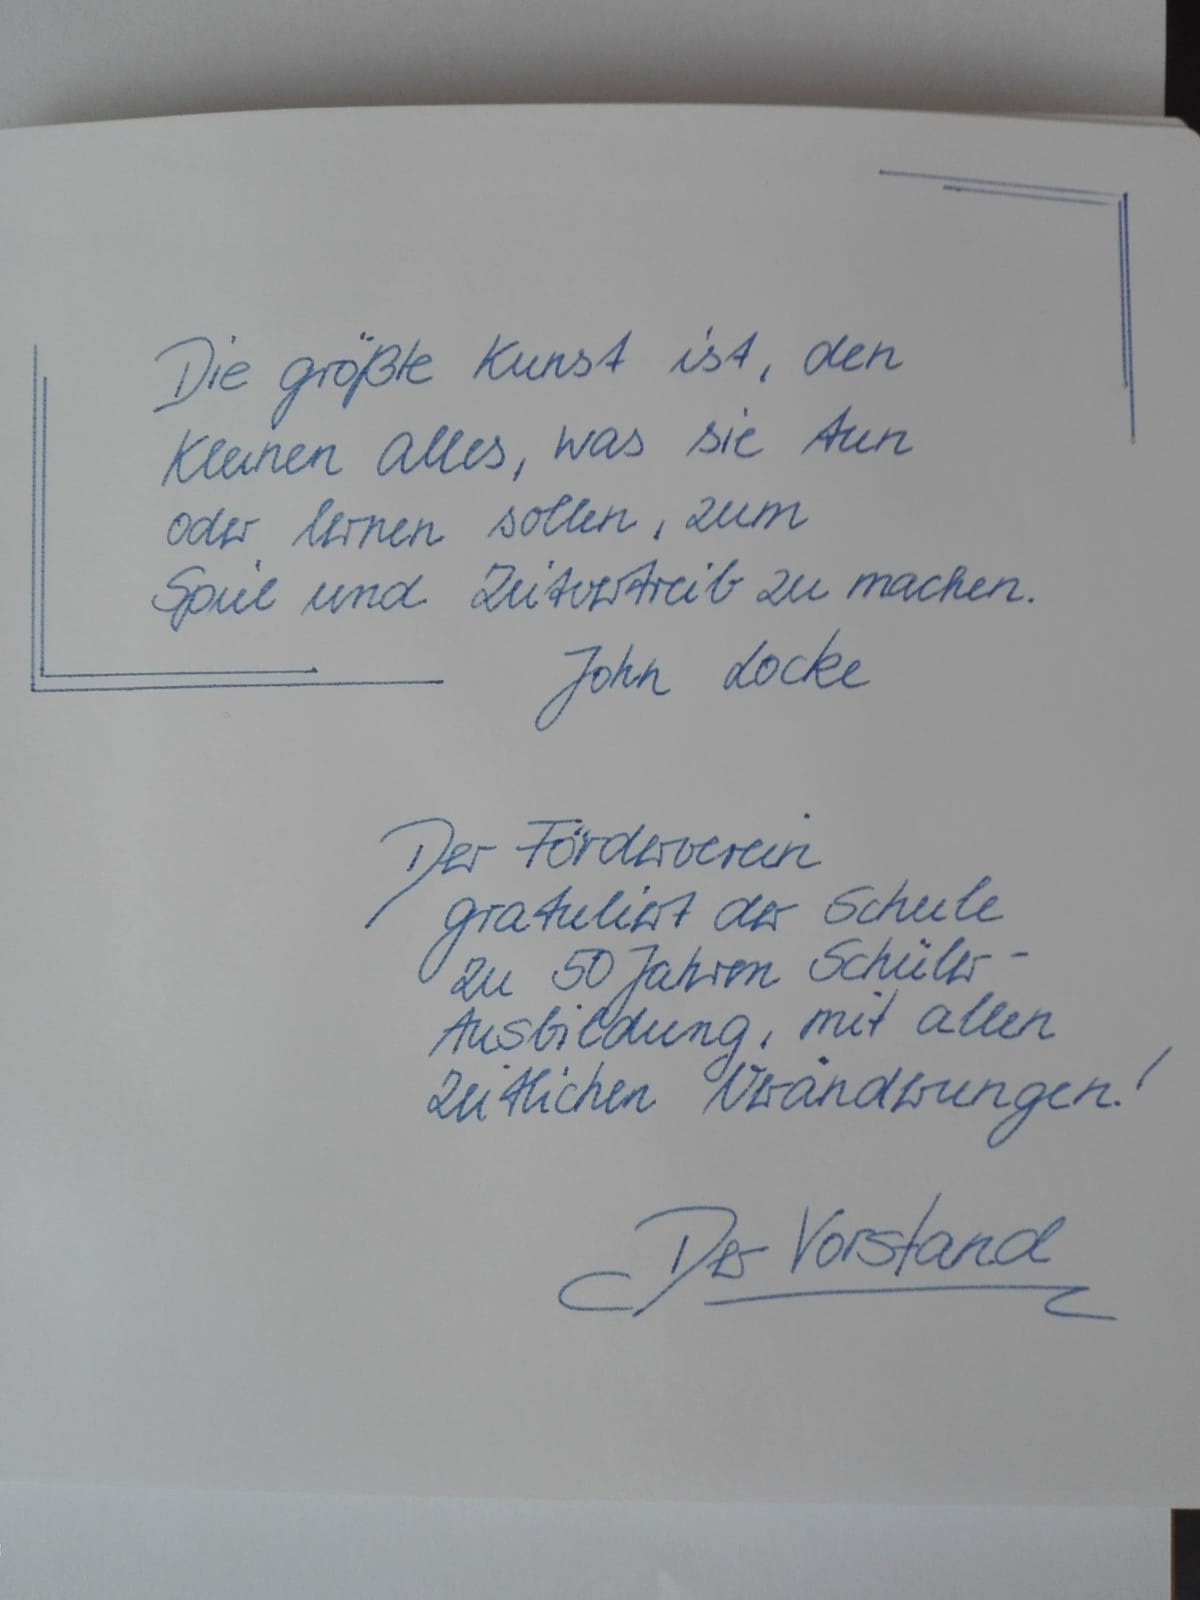 Die größte Kunst ist, den
Kleinen alles, was sie tun
oder lernen sollen, zum
Spiel und Zeitvertreib zu machen.
John Locke
Der Förderverein
gratuliert der Schule
zu 50 Jahren Schüler-
Ausbildung, mit allen
zeitlichen Veränderungen!
Der Vorstand